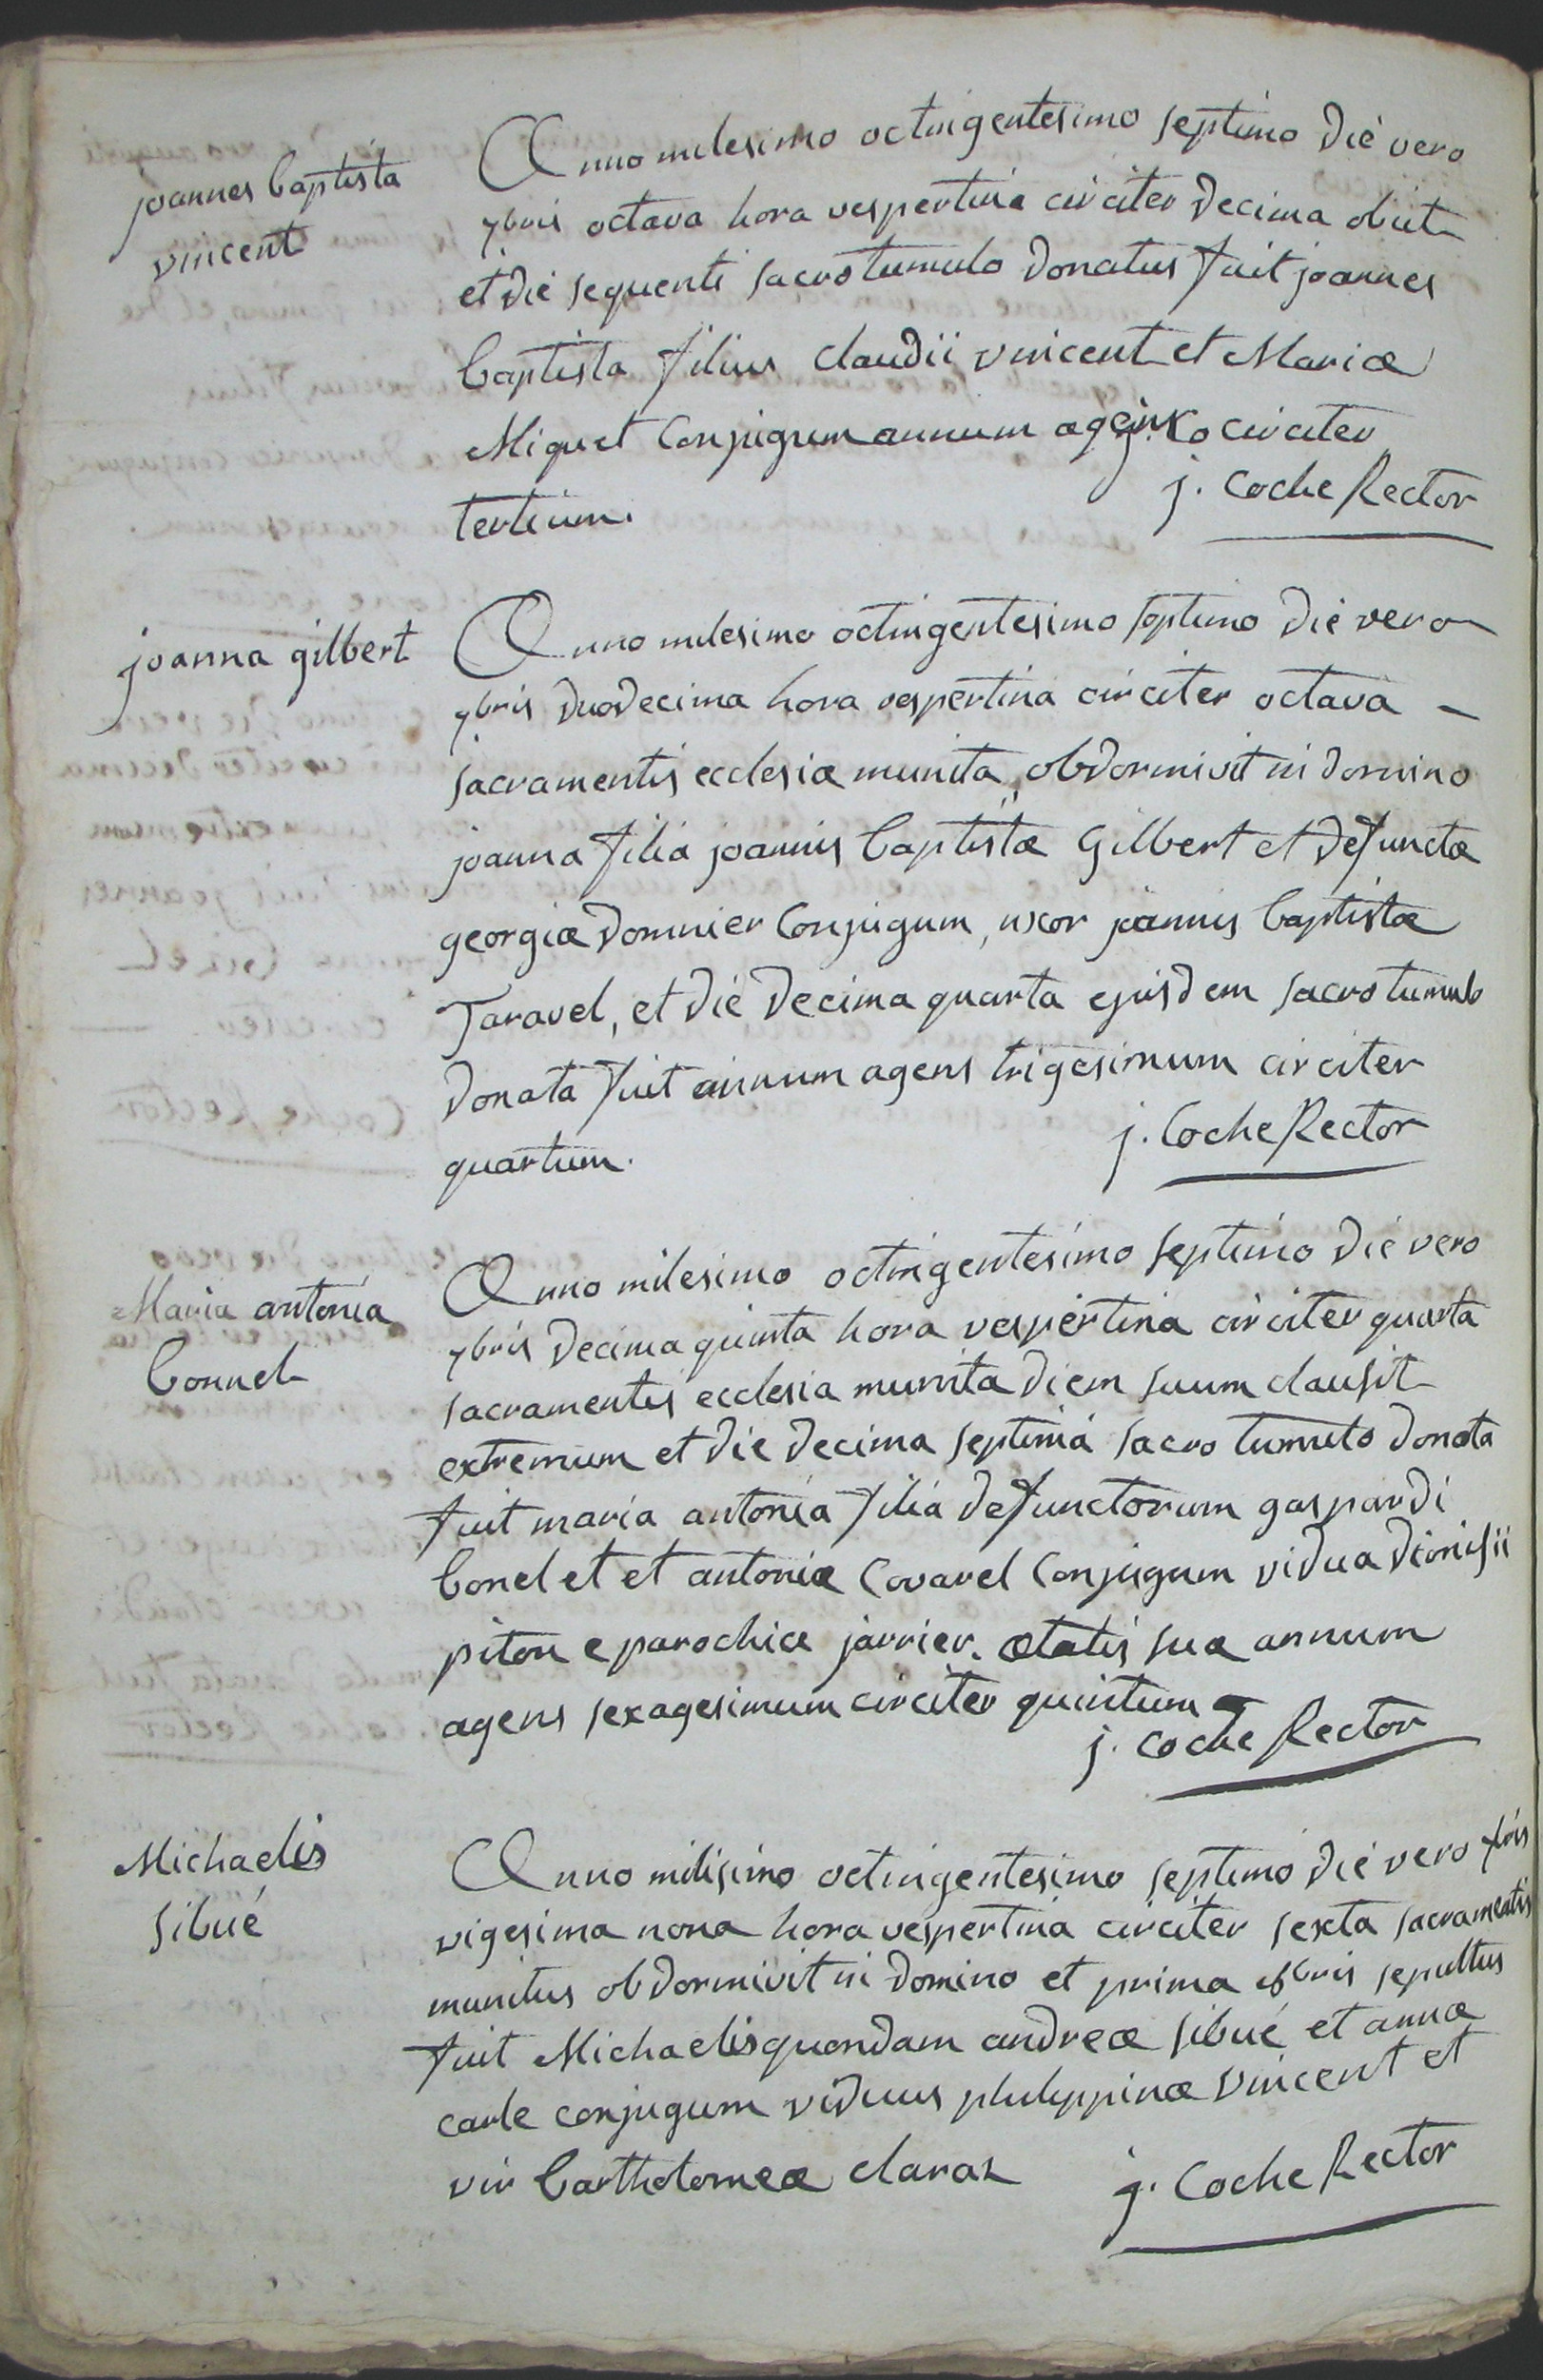 joannes baptista
vincent
Anno milesimo octingentesimo septimo die vero
7bris octava hora vespertina circiter decima obiit
et die sequenti sacro tumulo donatus fuit joannes
baptista filius claudii vincent et Mariæ
Miquet conjugum annum agens circiter
tertium.
j. Coche Rector
joanna gilbert
Anno milesimo octingentesimo septimo die vero
7bris duodecima hora vespertina circiter octava –
sacramentis ecclesiæ munita, obdormivit in domino
joanna filia joannis baptistæ Gilbert et defunctæ
georgiæ domnier conjugum, uxor joannis baptistæ
Taravel, et die decima quarta ejusdem sacro tumulo
donata fuit annum agens trigesimum circiter
quartum.
j. Coche Rector
Maria antonia
bonnel
Anno milesimo octingentesimo septimo die vero
7bris decima quinta hora vespertina circiter quarta
sacramentis ecclesia munita diem suum clausit
extremum et die decima septima sacro tumulo donata
fuit maria antonia filia defunctorum gaspardi
bonel et et antoniæ Covarel conjugum vidua dionisii
piton e parochia jarrier. ætatis suæ annum
agens sexagesimum circiter quintum
j. Coche Rector
Michaelis
sibué
Anno milisimo octingentesimo septimo die vero 7bris
vigesima nona hora vespertina circiter sexta sacramentis
munitus obdormivit in domino et prima 8bris sepultus
fuit Michaelis quondam andreæ sibué et annæ
carle conjugum viduus philippinæ vincent et
vir bartholomeæ claraz
j. Coche Rector